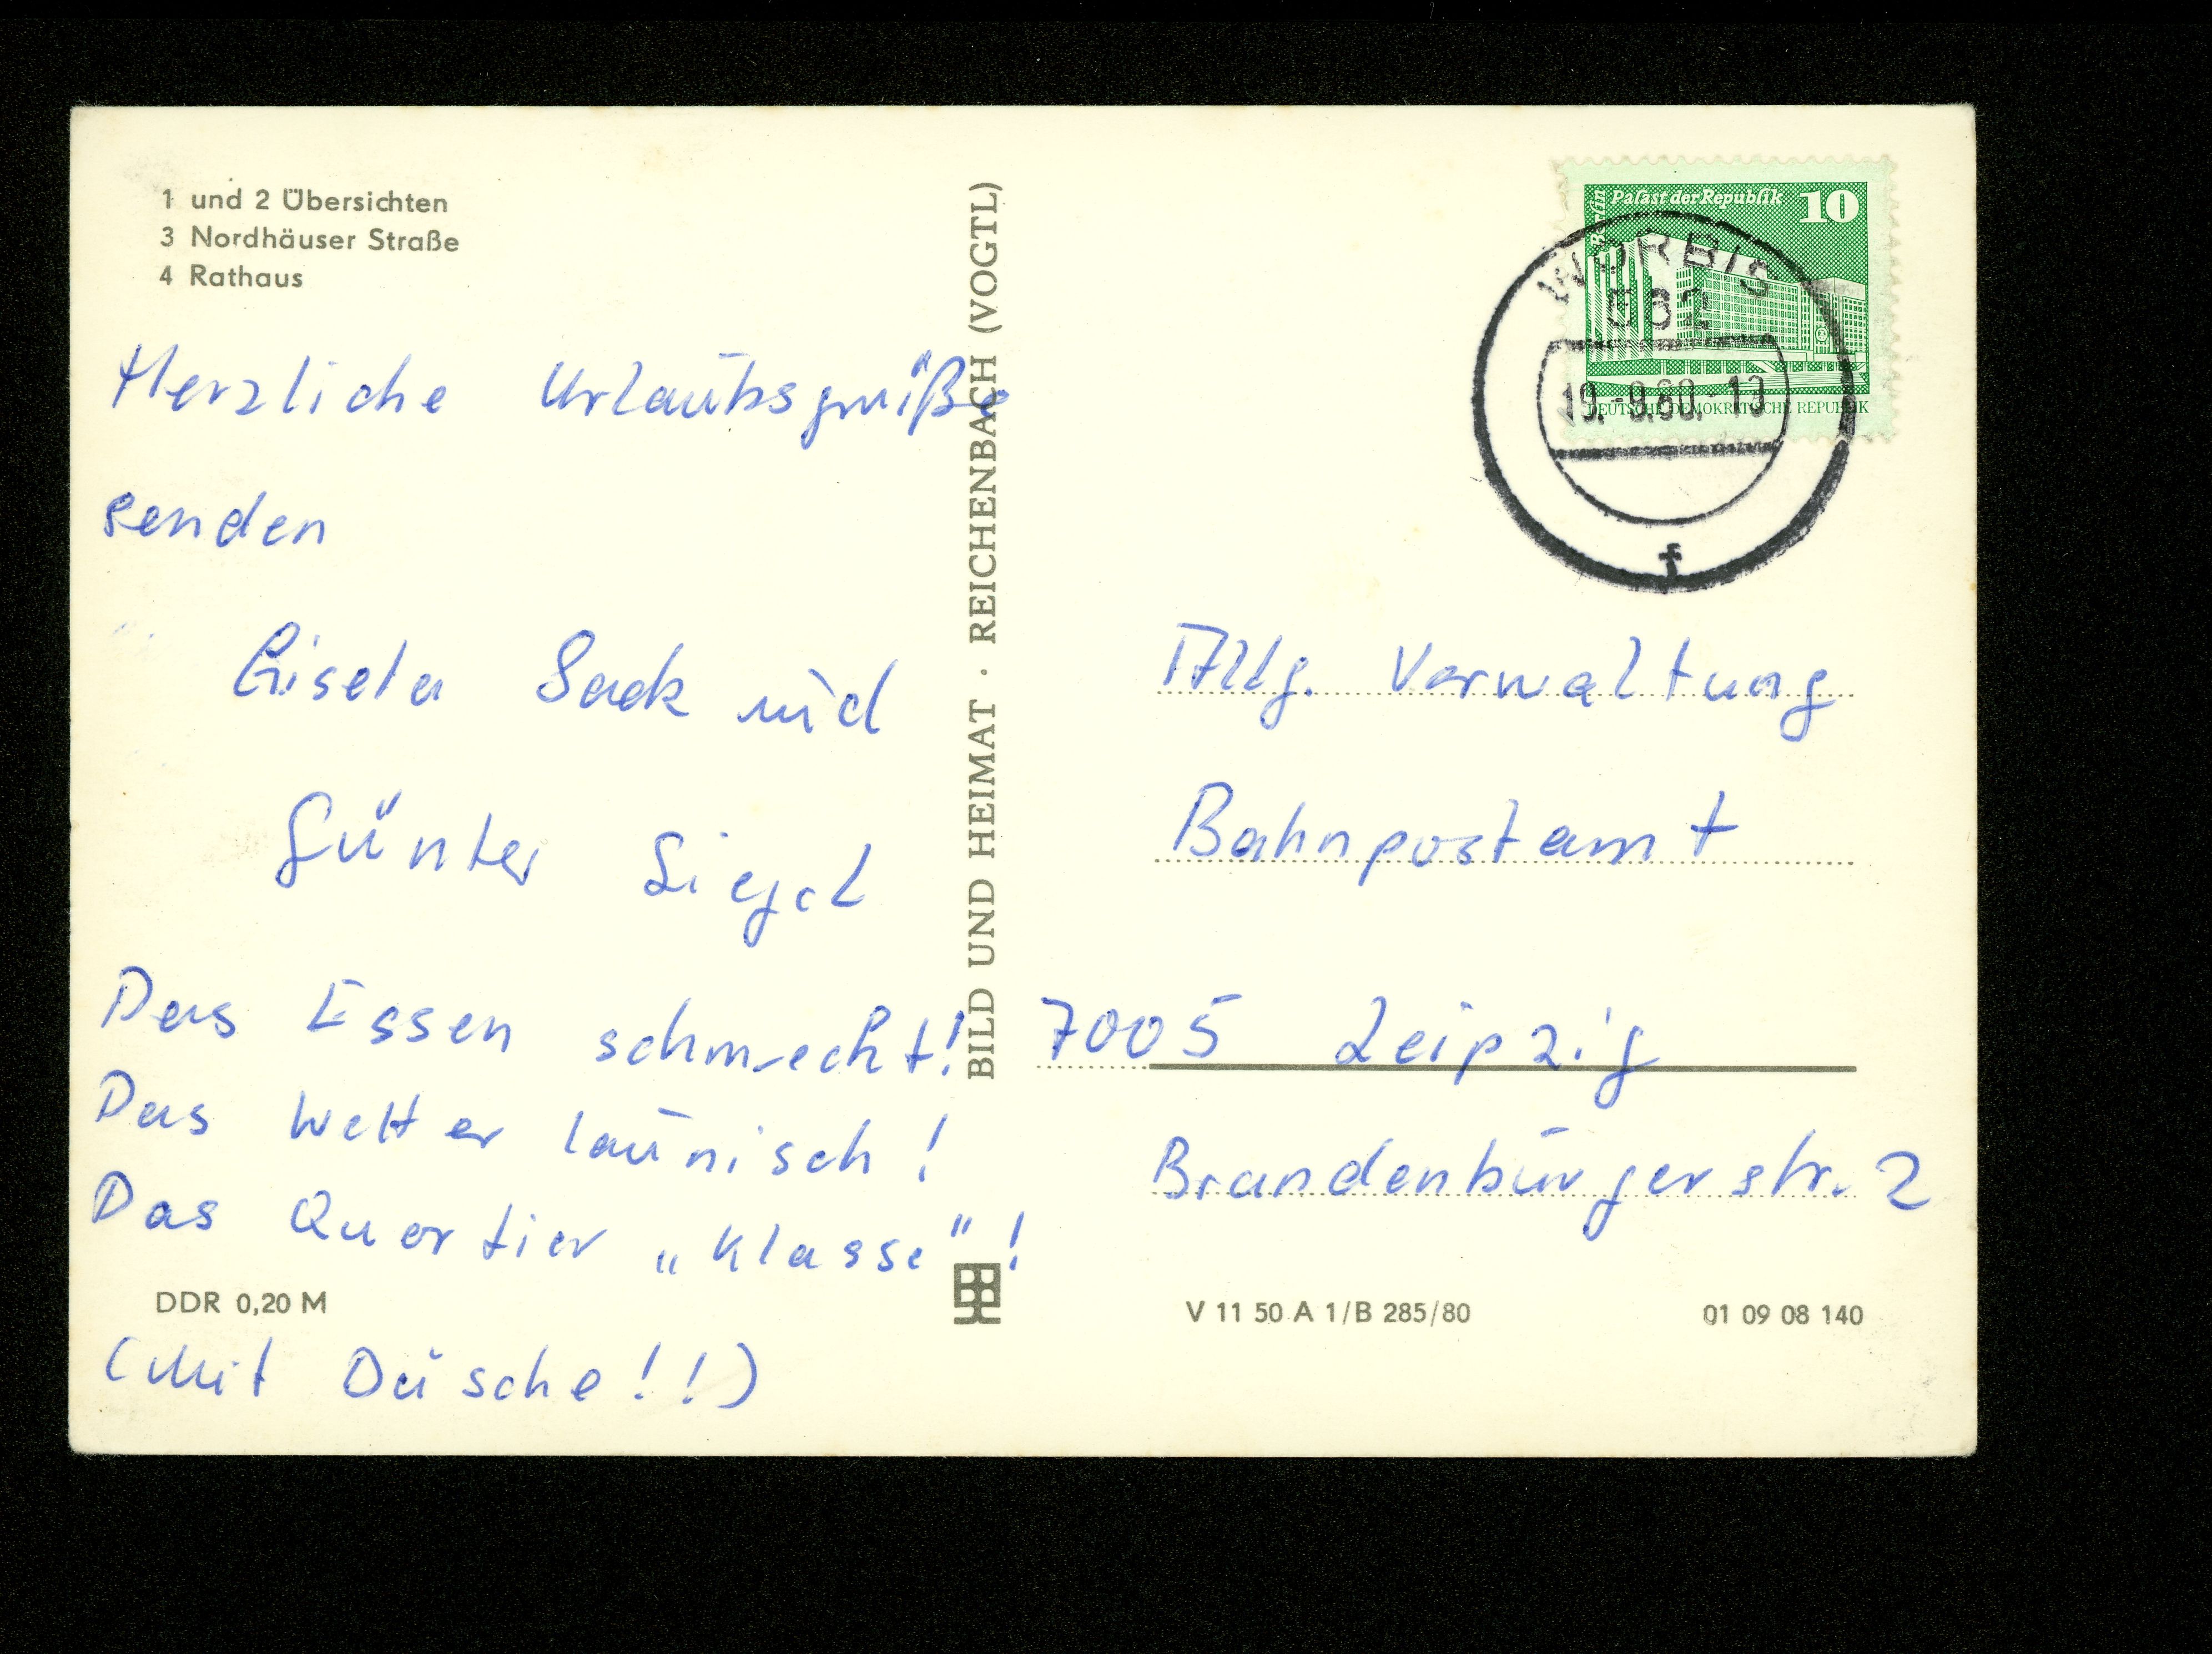 1 und 2 Übersichten
3 Nordhäuser Straße
4 Rathaus
Herzliche Urlaubsgrüße
senden
Gisela Sack und
Günter Siegel
Das Essen schmeckt!
Das Wetter launisch!
Das Quartier „Klasse"!
DDR 0,20 M
(Mit Dusche!!)
BILD UND HEIMAT · REICHENBACH (VOGTL)
Berlin
Palast der Republik 10
DEUTSCHE DEMOKRATISCHE REPUBLIK
WORBIS
19.-9.80.-13
f
Verwaltung
Bahnpostamt
7005 Leipzig
Brandenburgerstr. 2
V 11 50 A 1/B 285/80
01 09 08 140